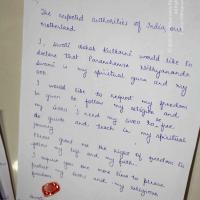 The respected authorities of India our
motherland.
I, Swati Kulkarni would like to
declare that Paramhamsa Nithyananda
Swami is my spiritual guru and my
god.
I would like to request my freedom
to given to follow my religion and
my Guru. I need my Guru to be free
to guide and teach in my spiritual
Please grant me the right of freedom to
follow my and my path.
I require you one more time to please
freedom my Guru and my religious